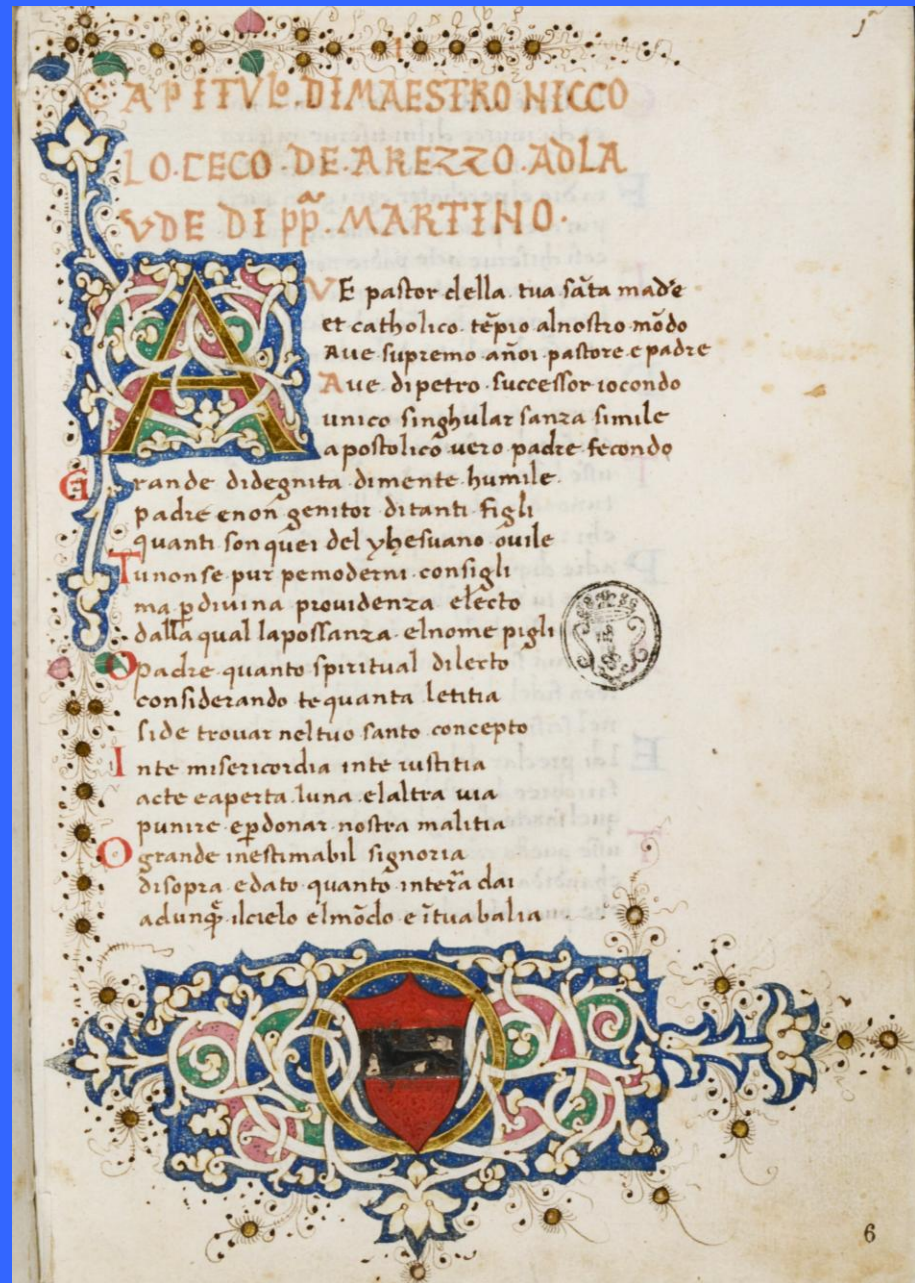 1
CAPITVLO. DI MAESTRO NICCO
LO. CECO. DE. AREZZO. AD LA
VDE DI PP.ᵃ MARTINO.
AVE pastor della tua sãta mad̃e
et catholico tẽpio alnostro mõdo
Aue supremo añoi pastore e padre
Aue dipetro successor iocondo
unico singhular sanza simile
apostolico uero padre fecondo
Grande didegnita dimente humile
padre enoñ genitor ditanti figli
quanti son quei del yhesuano ouile
Tunonse pur pemoderni consigli
ma ꝑdiuina prouidenza electo
dalla qual lapossanza elnome pigli
Opadre quanto spiritual dilecto
considerando te quanta letitia
side trouar neltuo santo concepto
Inte misericordia inte iustitia
acte eaperta luna elaltra uia
punire eꝑdonar nostra malitia
Ogrande inestimabil signoria
disopra edato quanto interã dai
adunq̃ ilcielo elmõdo e ĩtuabalia
6